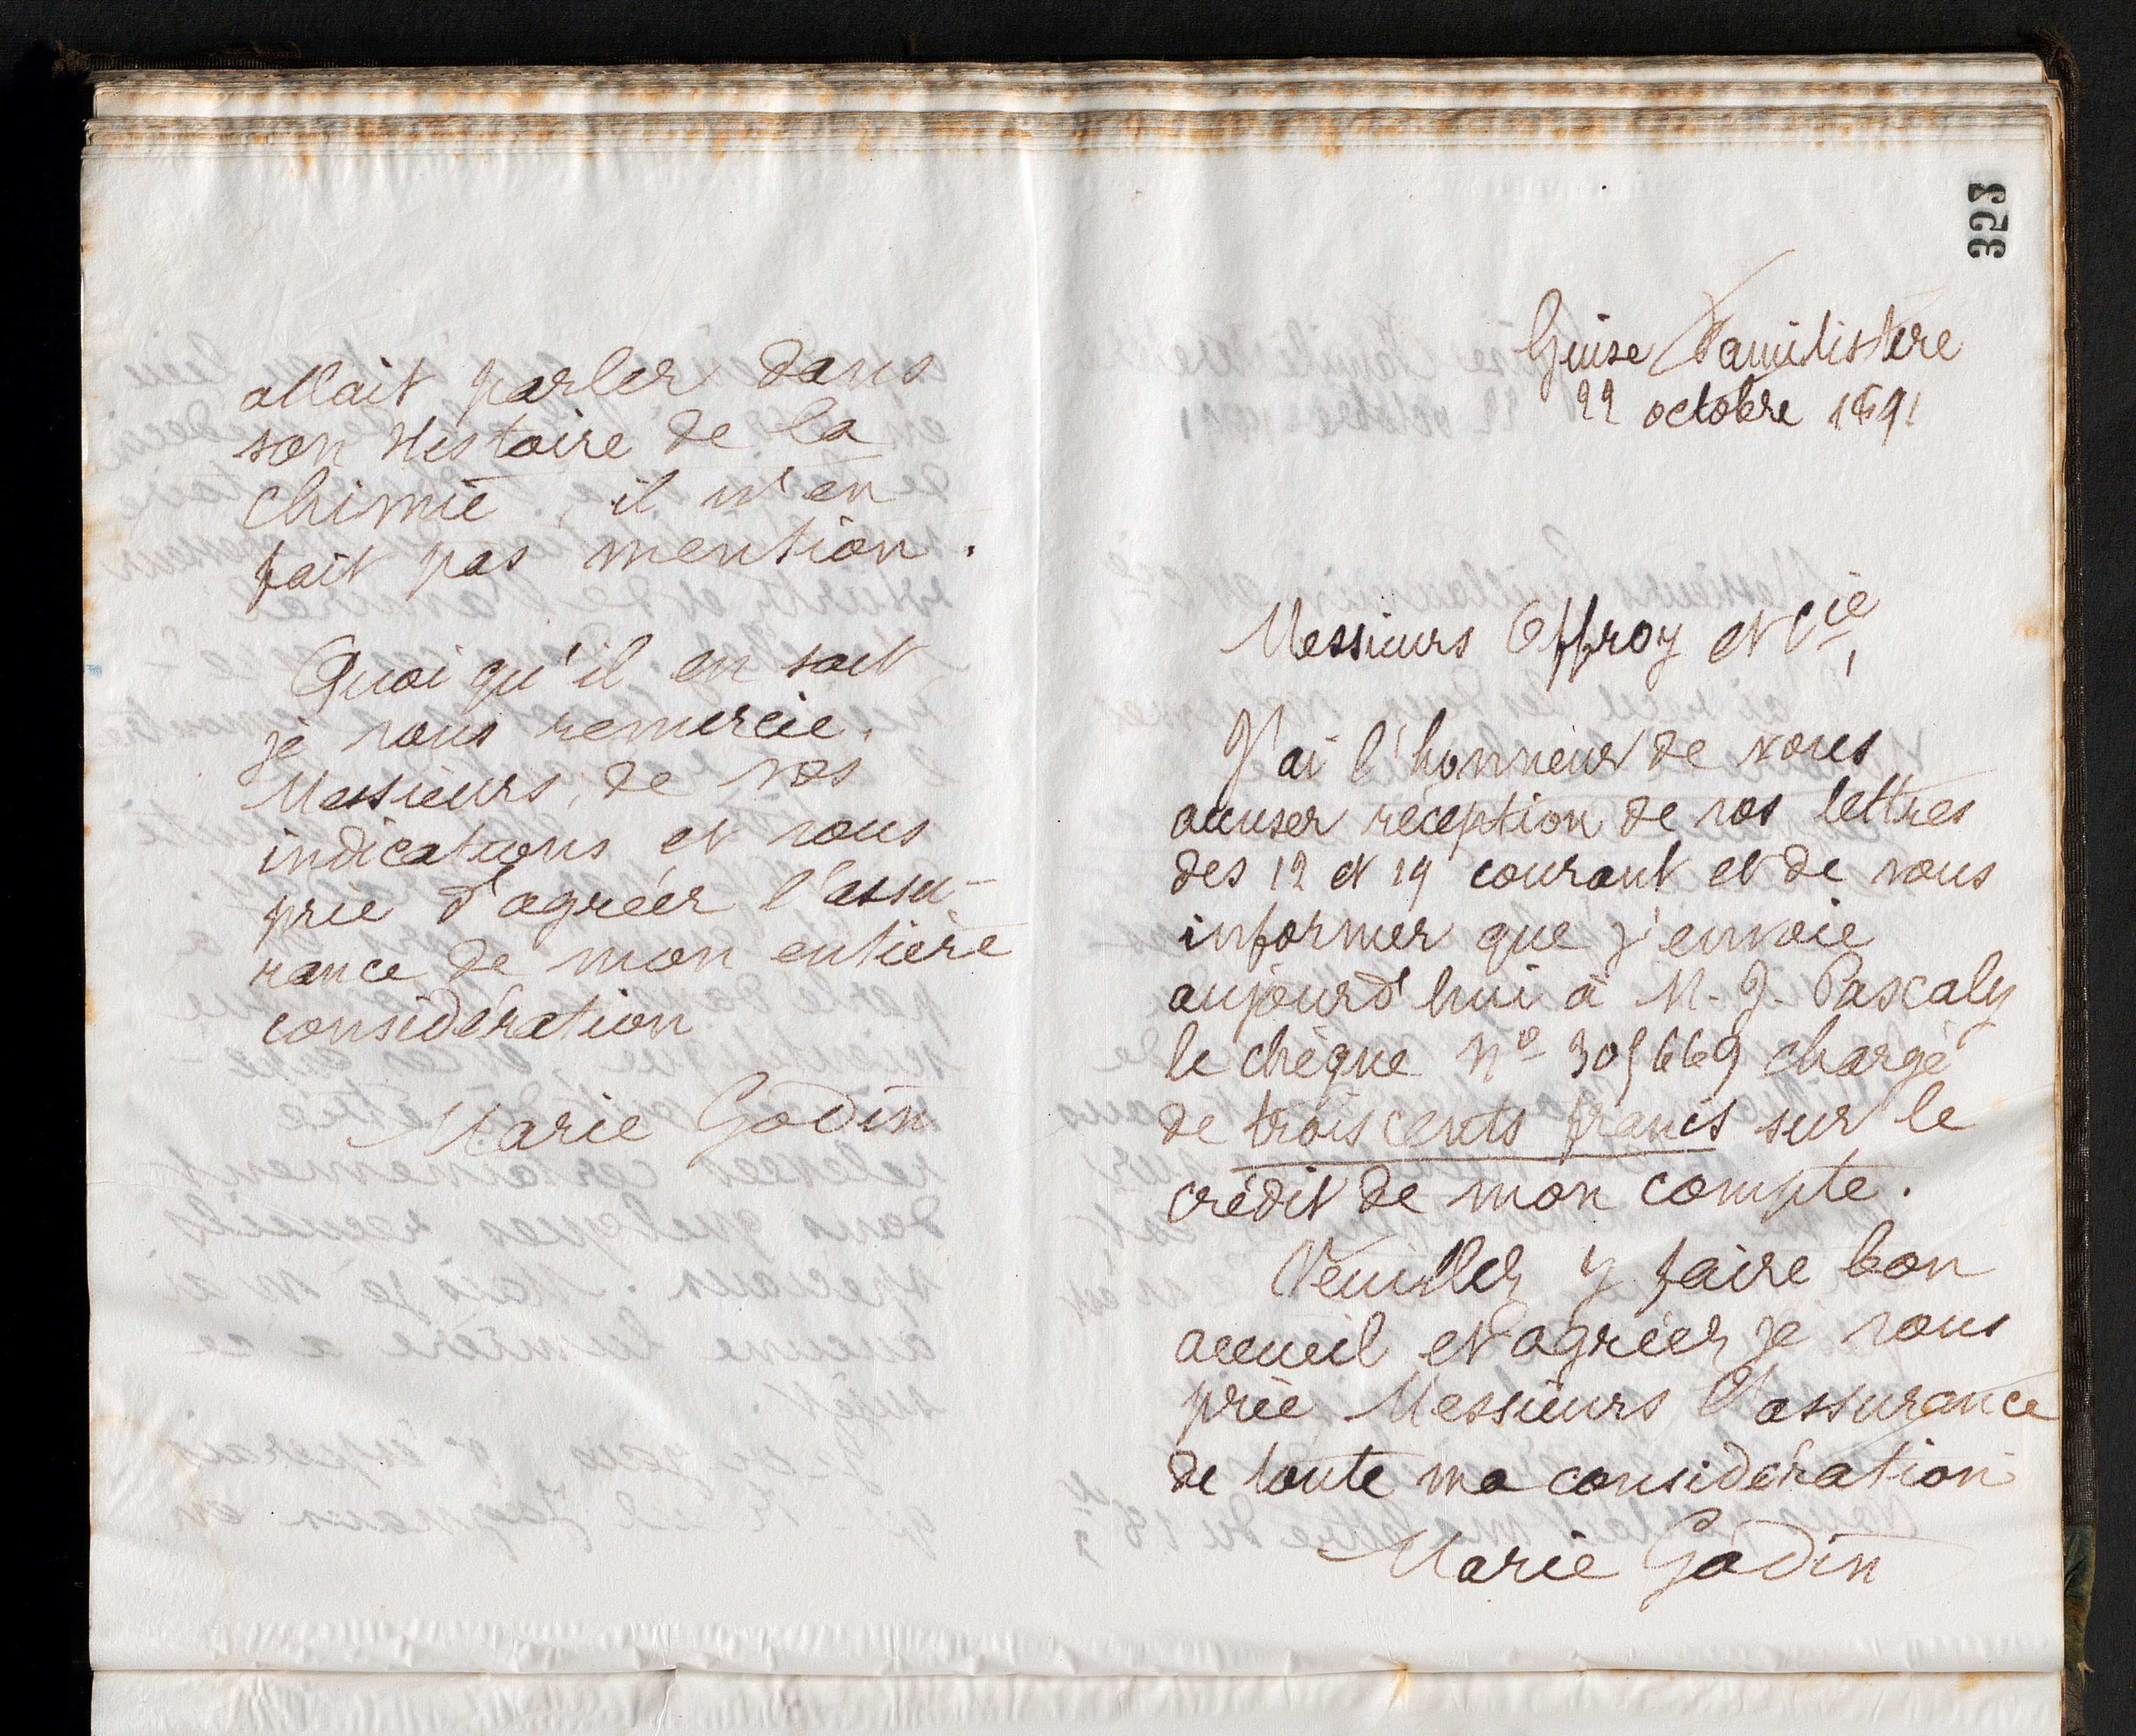 allait parler dans
son Histoire de la
chimie, il n'en
fait pas mention.
Quoi qu'il en soit,
je vous remercie,
Messieurs, de vos
indications et vous
prie d'agréer l'assu-
rance de mon entière
considération
Marie Godin
323
Guise Familistère
22 octobre 1891
Messieurs Offroy et Cie,
J'ai l'honneur de vous
accuser réception de vos lettres
des 12 et 19 courant et de vous
informer que j'envoie
aujourd'hui à M. J. Pascaly
le chèque No 305669 chargé
de trois cents francs sur le
crédit de mon compte.
Veuillez y faire bon
accueil et agréer, je vous
prie, Messieurs l'assurance
de toute ma considération
Marie Godin